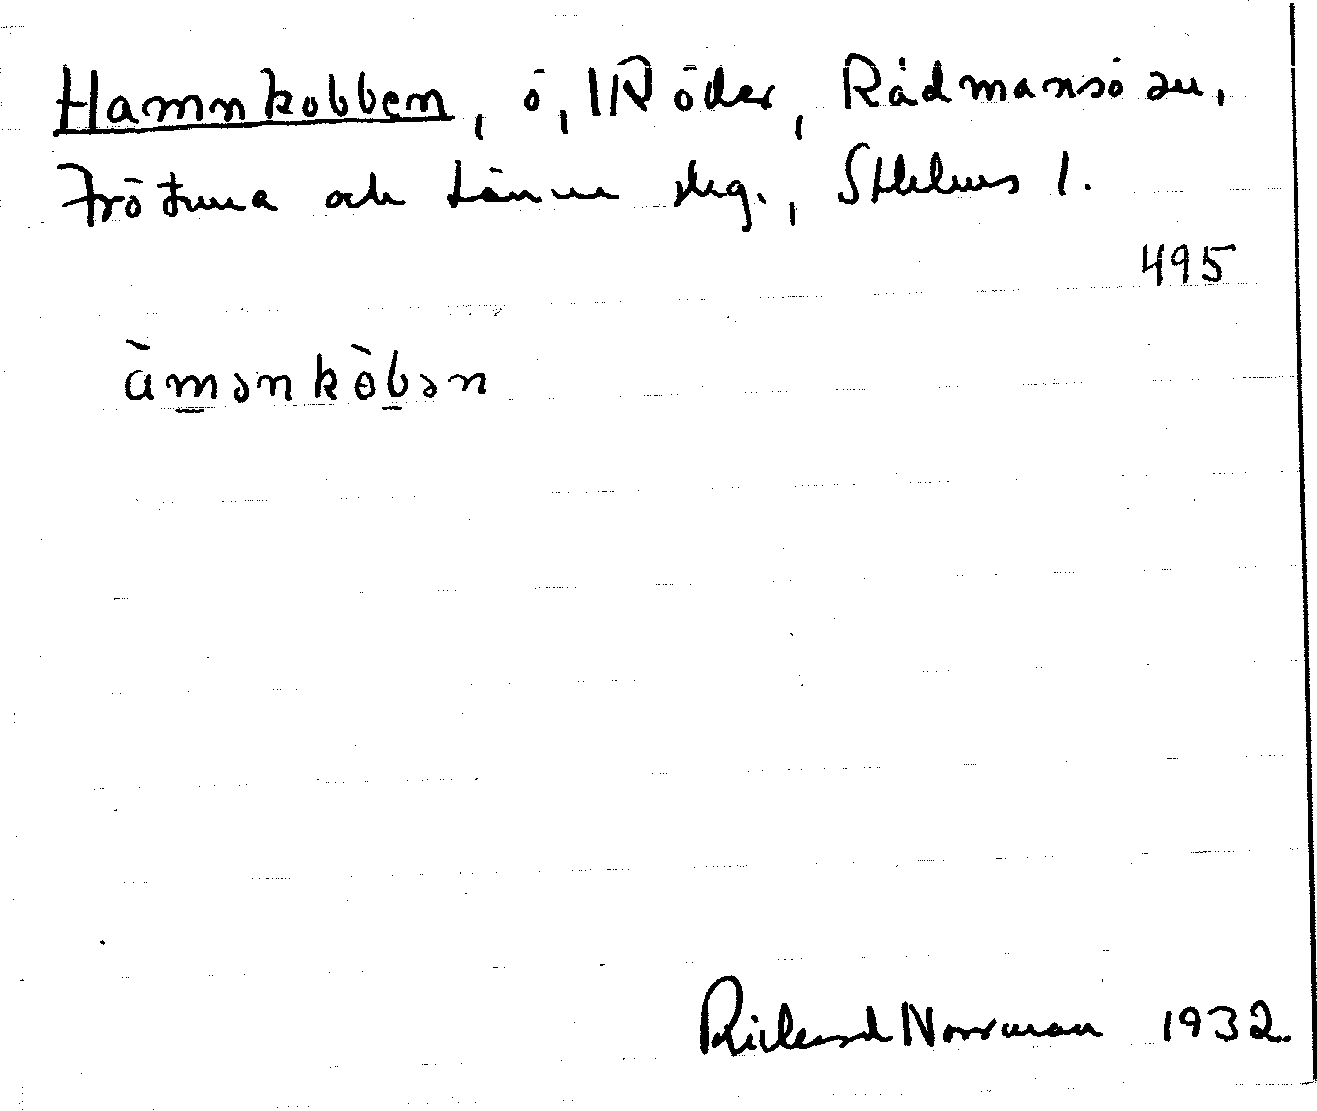 Hamnkobben, ö, IRöder, Rådmansö sn,
Frötuna och Länna slg., Sthlms l.
495
ὰmənkὸbən
Rickard Norrman 1932.